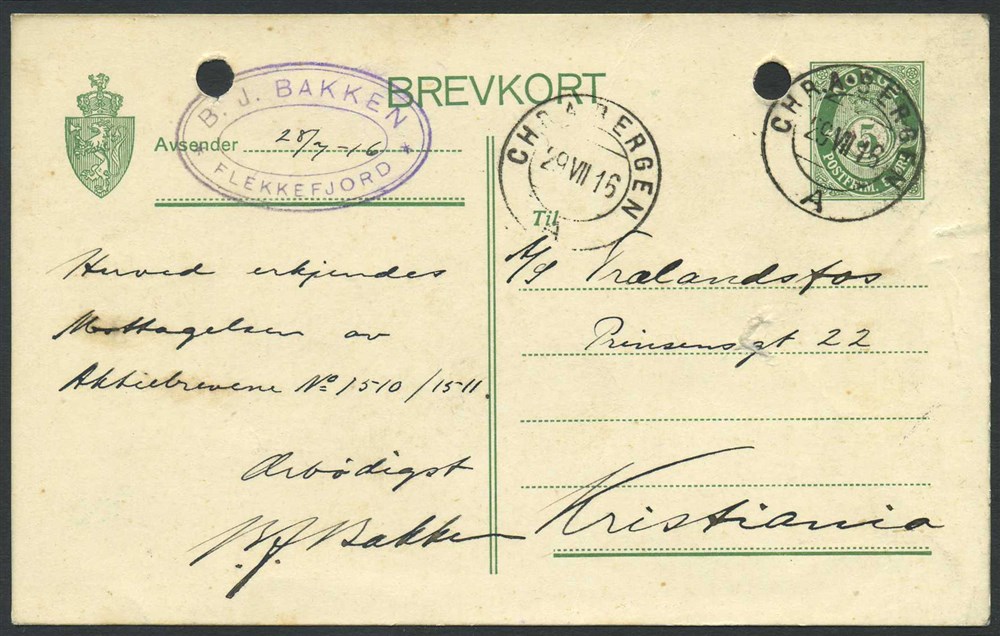 BREVKORT
B. J. BAKKEN
FLEKKEFJORD
Avsender 28/7-16
CHR.A BERGEN
29 VII 16
A
CHR.A BERGEN
29 VII 16
A
5
POSTFRIM.
Til
Herved erkjendes
Mottagelsen av
Aktiebrevene No 1510/1511.
Ærbødigst
B.J. Bakken
A/S Trælandsfos
Prinsensgt 22
Kristiania